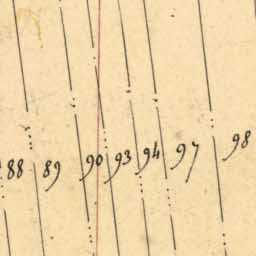 88 89 90 93 94 97 98